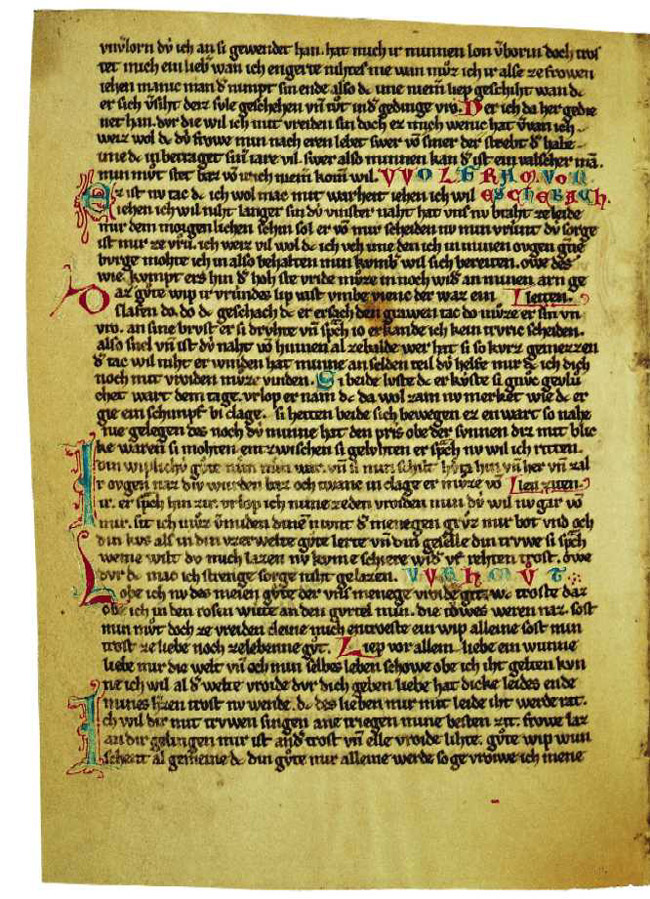 dv ich an si gewendet han. hat mich ir minnen lon v̄born doch tros
tet mich ein lieb wan ich engerte nihtes nie wan mvͦz ich ir alse ze frowen
iehen manic man d nimpt sin ende also dc ime niem liep geschiht wan dc
er sich v̄siht deiz svle geschehen vn̄ tvͦt in d gedinge vro. Der ich da her gedie
net han. dvr die wil ich mit vreiden sin doch er mich wenic hat v̄van ich
weiz wol dc dv frowe min nach eren lebet swer vō siner der strebt d habe
ime dc in betraget sin iare vil. swer also minnen kan d ist ein valscher man.
min mvͦt stet baz vō ir ich niem kom wil. WOLFRAM. VON
Ez ist nv tac dc ich wol mac mit warheit iehen ich wil ESCHEBACH.
ich wil niht langer sin dv vinster naht hat vns nv braht ze leide
mir dem morgenlichen schin sol er vō mir scheiden nv min vrivnt dv sorge
ist mir ze vrv. ich weiz vil wol dc ich veh ime den ich in minen ovgen g̓ne
bvrge mohte ich in also behalten min kvmb wil sich bereiten. owe des
wie kvmpt ers hin d hoh ste vride mvze in noch wid an minen arn ge
Daz gvͦte wip ir vrivndes lip vast vmbe vienc der waz ein leiten.
slafen do. do dc geschach dc er ersach den grawen tac do mvze er sin vn
vro. an sine brvst er si drvhte vn̄ sp̄ch io er kande ich kein trvric scheiden.
also snel vn̄ ist dv naht vō hinnen al zebalde wer hat si so kvrz gemezzen
d tac wil niht erwinden hat minne an selden teil dv helfe mir dc ich dich
noch mit vroiden mvze vinden. Si beide lvste dc er kvste si gnvc gevlv
chet wart dem tage. vrlop er nam dc da wol zam nv merket wie dc er
gie ein schimpf bi clage. si heten beide sich bewegen ez en wart so nahe
nie gelegen des noch dv minne hat den pris obe der svnnen driz mit blic
ke waren si mohten entzwischen si gelvhten er sp̄ch nv wil ich riten.
din wiplichv gvͦte nam min war. vn̄ si min schilt hin vn̄ her vn̄ zal
Ir ovgen naz div wurden baz och twanc in clage er mvͦze vō
ir. er sp̄ch hin zir. vrlop ich nime zeden vroiden min dv wil nv gar vō
mir. sit ich mvͦz v̄miden dinē mvnt d menegen grvz mir bot vnd och
din kvs als in din vzerwelte gvte lerte vn̄ din geselle din trvwe si sp̄ch
weme wilt dv mich lazen nv kvme schiere wid vf rehten trost. owe
dvr dc mac ich strenge sorge niht gelazen. WAHSMVT
Lobe ich nv des meien gvte der vns menege vroide gitz we troste daz
obe ich in den rosen wite an den gvrtel min. die rowes weren naz. sost
min mvͦt doch ze vreiden cleine mich entroeste ein wip alleine sost min
trost ze liebe noch zelebenne gvͦt. Liep vor allem liebe ein wunne
liebe mir die welt vn̄ och min selbes leben schowe obe ich iht gelten kvn
ne ich wil al d welte vroide dvr dich geben liebe hat dicke leides ende
mines hzen trost nv wende. dc des lieben mir mit leide iht werde rat.
Ich wil dir mit trvwen singen ane triegen mine besten zit. frowe laz
an dir gelingen mir ist and trost vn̄ elle vroide lihte. gvͦte wip wun
schent al gemeine dc din gvͦte mir alleine werde so ge vrowe ich mene